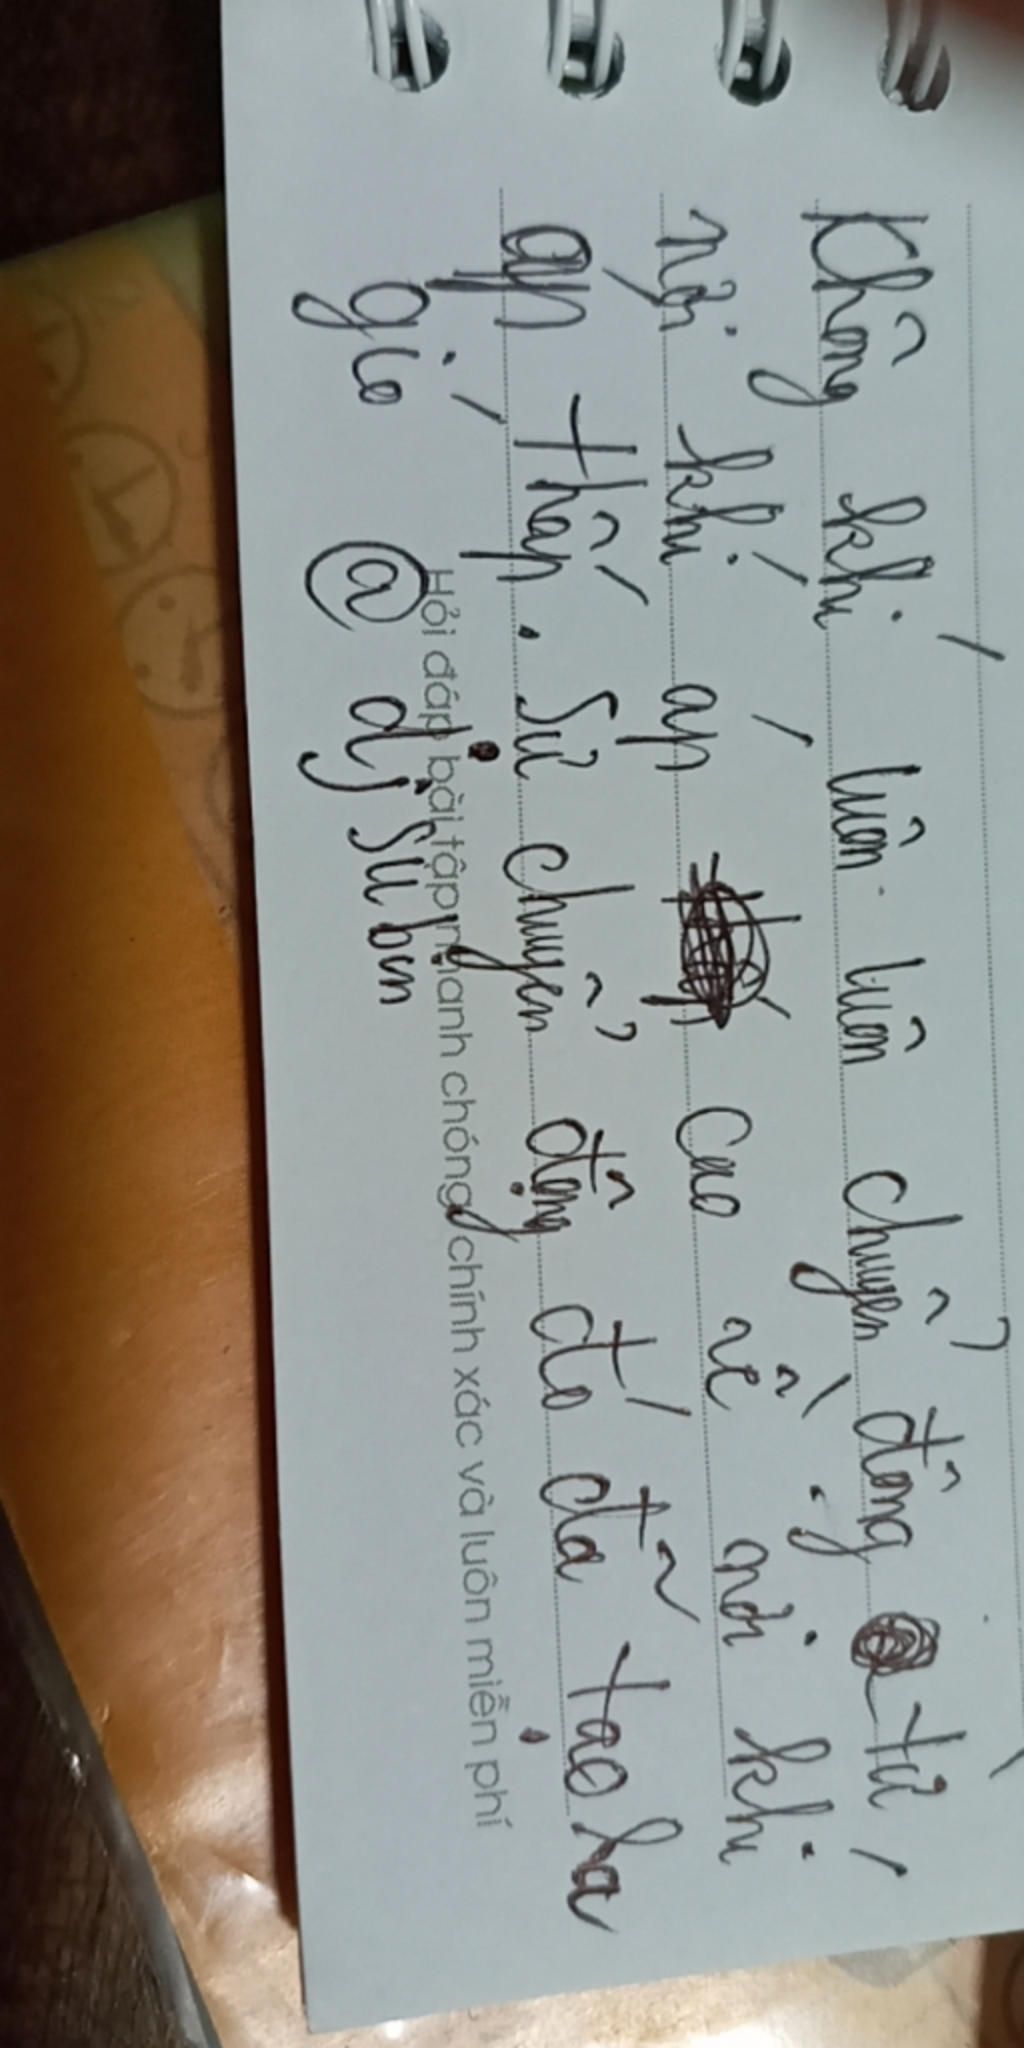 Không khí luôn luôn chuyển động từ
nơi khí áp cao về nơi khí
áp thấp. Sự chuyển động đó đã tạo ra
gió @ dj Su bin
Hỏi đáp bài tập nhanh chóng chính xác và luôn miễn phí